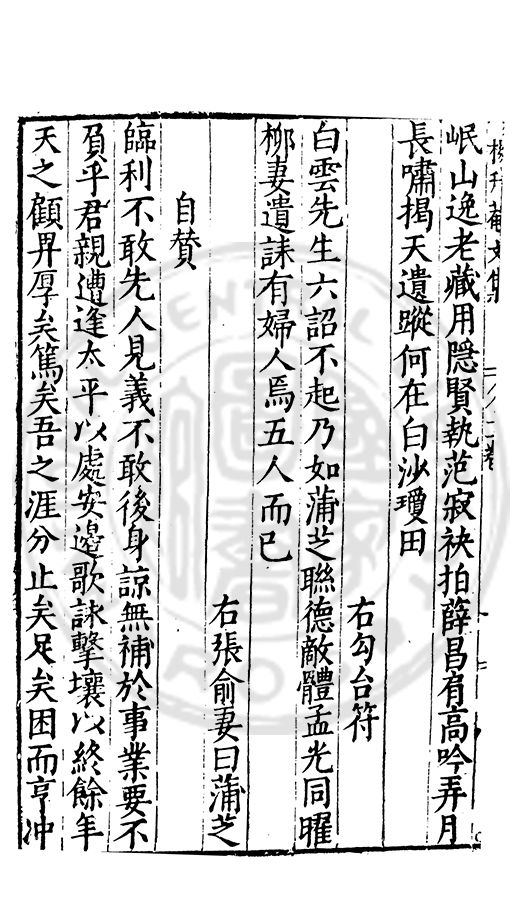 楊升菴文集
岷山逸老藏用隱賢執范寂袂拍薛昌肩高吟弄月
長嘯揭天遺蹤何在白沙瓊田
右勾台符
白雲先生六詔不起乃如蒲芝聯德敵體孟光同曜
柳妻遺誄有婦人焉五人而已
右張俞妻曰蒲芝
自贊
臨利不敢先人見義不敢後身諒無補於事業要不
負乎君親遭逢太平以處安邊歌詠擊壤以終餘年
天之顧畀厚矣篤矣吾之涯分止矣足矣困而亨冲